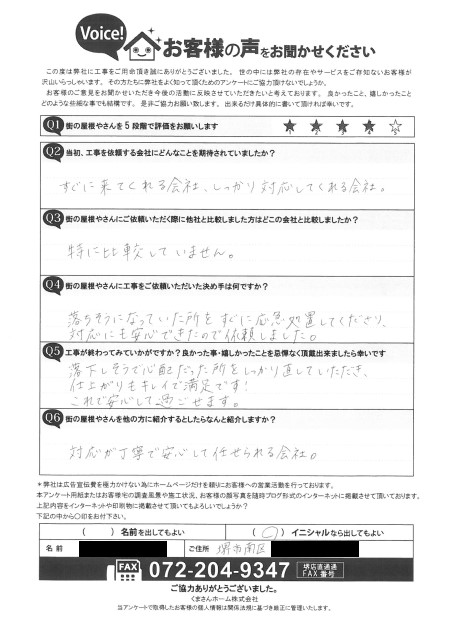 Voice!
お客様の声をお聞かせください
この度は弊社に工事をご用命頂き誠にありがとうございました。世の中には弊社の存在やサービスをご存知ないお客様が
沢山いらっしゃいます。その方たちに弊社をよく知って頂くためのアンケートにご協力頂けないでしょうか。
お客様のご意見をお聞かせいただき今後の活動に反映させていただきたいと考えております。良かったこと、嬉しかったこと
どのような些細な事でも結構です。是非ご協力お願い致します。出来るだけ具体的に書いて頂ければ幸いです。
Q1 街の屋根やさんを5段階で評価をお願いします ★1 ★2 ★3 ★4 ☆5
Q2 当初、工事を依頼する会社にどんなことを期待されていましたか?
すぐに来てくれる会社、しっかり対応してくれる会社。
Q3 街の屋根やさんにご依頼いただく際に他社と比較しました方はどこの会社と比較しましたか?
特に比較していません。
Q4 街の屋根やさんに工事をご依頼いただいた決め手は何ですか?
落ちそうになっていた所をすぐに応急処置してくださり、
対応にも安心できたので依頼しました。
Q5 工事が終わってみていかがですか?良かった事・嬉しかったことを忌憚なく頂戴出来ましたら幸いです
落下しそうで心配だった所をしっかり直していただき、
仕上がりもキレイで満足です!
これで安心して過ごせます。
Q6 街の屋根やさんを他の方に紹介するとしたらなんと紹介しますか?
対応が丁寧で安心して任せられる会社。
*弊社は広告宣伝費を極力かけない為にホームページだけを頼りにお客様への営業活動を行っております。
本アンケート用紙またはお客様宅の調査風景や施工状況、お客様の顔写真を随時ブログ形式のインターネットに掲載させて頂いております。
上記内容をインターネットや印刷物に掲載させて頂いてもよろしいでしょうか?
下記の中から〇印をお付下さい。
( ) 名前を出してもよい (〇) イニシャルなら出してもよい
名前 ご住所 堺市南区
FAX 072-204-9347 堺店直通 FAX番号
ご協力ありがとうございました。
くまさんホーム株式会社
当アンケートで取得したお客様の個人情報は関係法規に基づき厳正に管理いたします。